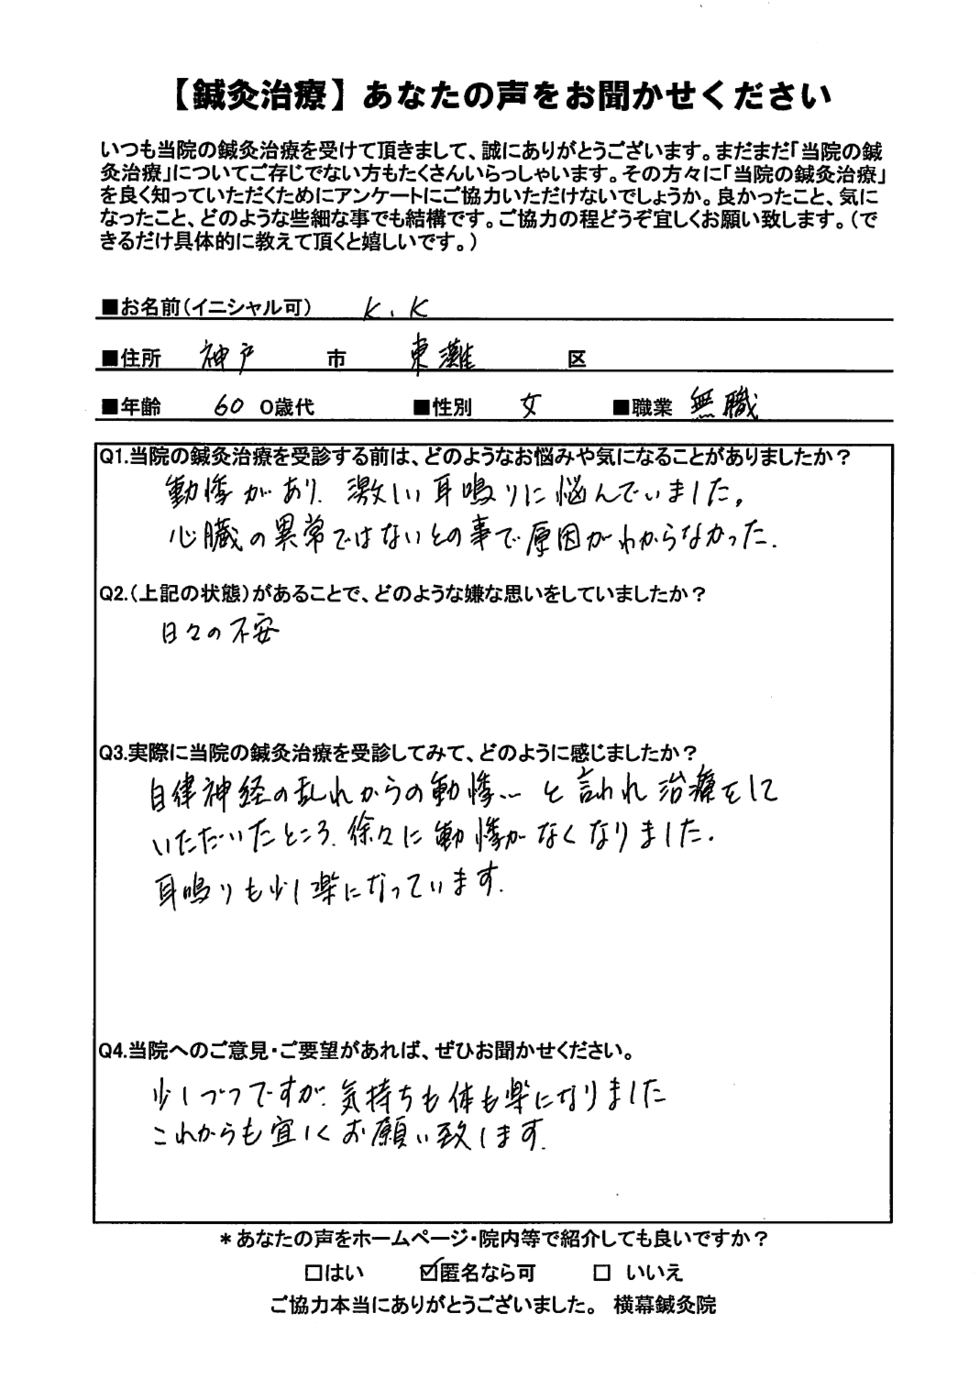 【鍼灸治療】あなたの声をお聞かせください
いつも当院の鍼灸治療を受けて頂きまして、誠にありがとうございます。まだまだ「当院の鍼
灸治療」についてご存じでない方もたくさんいらっしゃいます。その方々に「当院の鍼灸治療」
を良く知っていただくためにアンケートにご協力いただけないでしょうか。良かったこと、気に
なったこと、どのような些細な事でも結構です。ご協力の程どうぞ宜しくお願い致します。（で
きるだけ具体的に教えて頂くと嬉しいです。）
■お名前（イニシャル可） K.K
■住所 神戸 市 東灘 区
■年齢 60 0歳代 ■性別 女 ■職業 無職
Q1.当院の鍼灸治療を受診する前は、どのようなお悩みや気になることがありましたか？
動悸があり、激しい耳鳴りに悩んでいました。
心臓の異常ではないとの事で原因がわからなかった.
Q2.（上記の状態）があることで、どのような嫌な思いをしていましたか？
日々の不安
Q3.実際に当院の鍼灸治療を受診してみて、どのように感じましたか？
自律神経の乱れからの動悸… と言われ 治療をして
いただいたところ、徐々に動悸がなくなりました.
耳鳴りも少し楽になっています.
Q4.当院へのご意見・ご要望があれば、ぜひお聞かせください。
少しづつですが、気持ちも体も楽になりました
これからも宜しくお願い致します.
＊あなたの声をホームページ・院内等で紹介しても良いですか？
□はい ☑匿名なら可 □ いいえ
ご協力本当にありがとうございました。 横幕鍼灸院